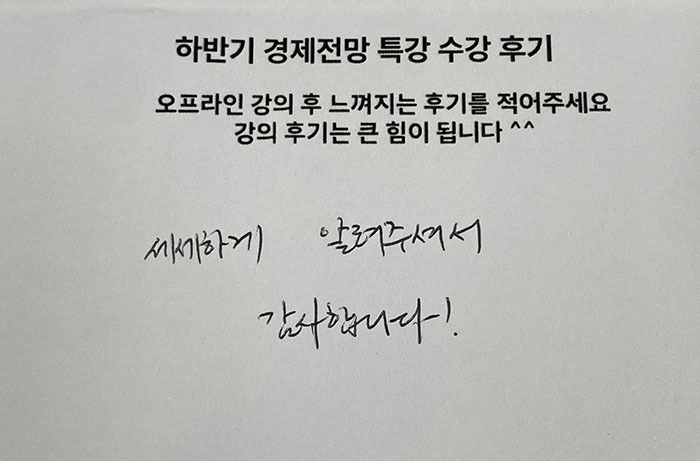 하반기 경제전망 특강 수강 후기
오프라인 강의 후 느껴지는 후기를 적어주세요
강의 후기는 큰 힘이 됩니다 ^^
세세하게 알려주셔서
감사합니다!